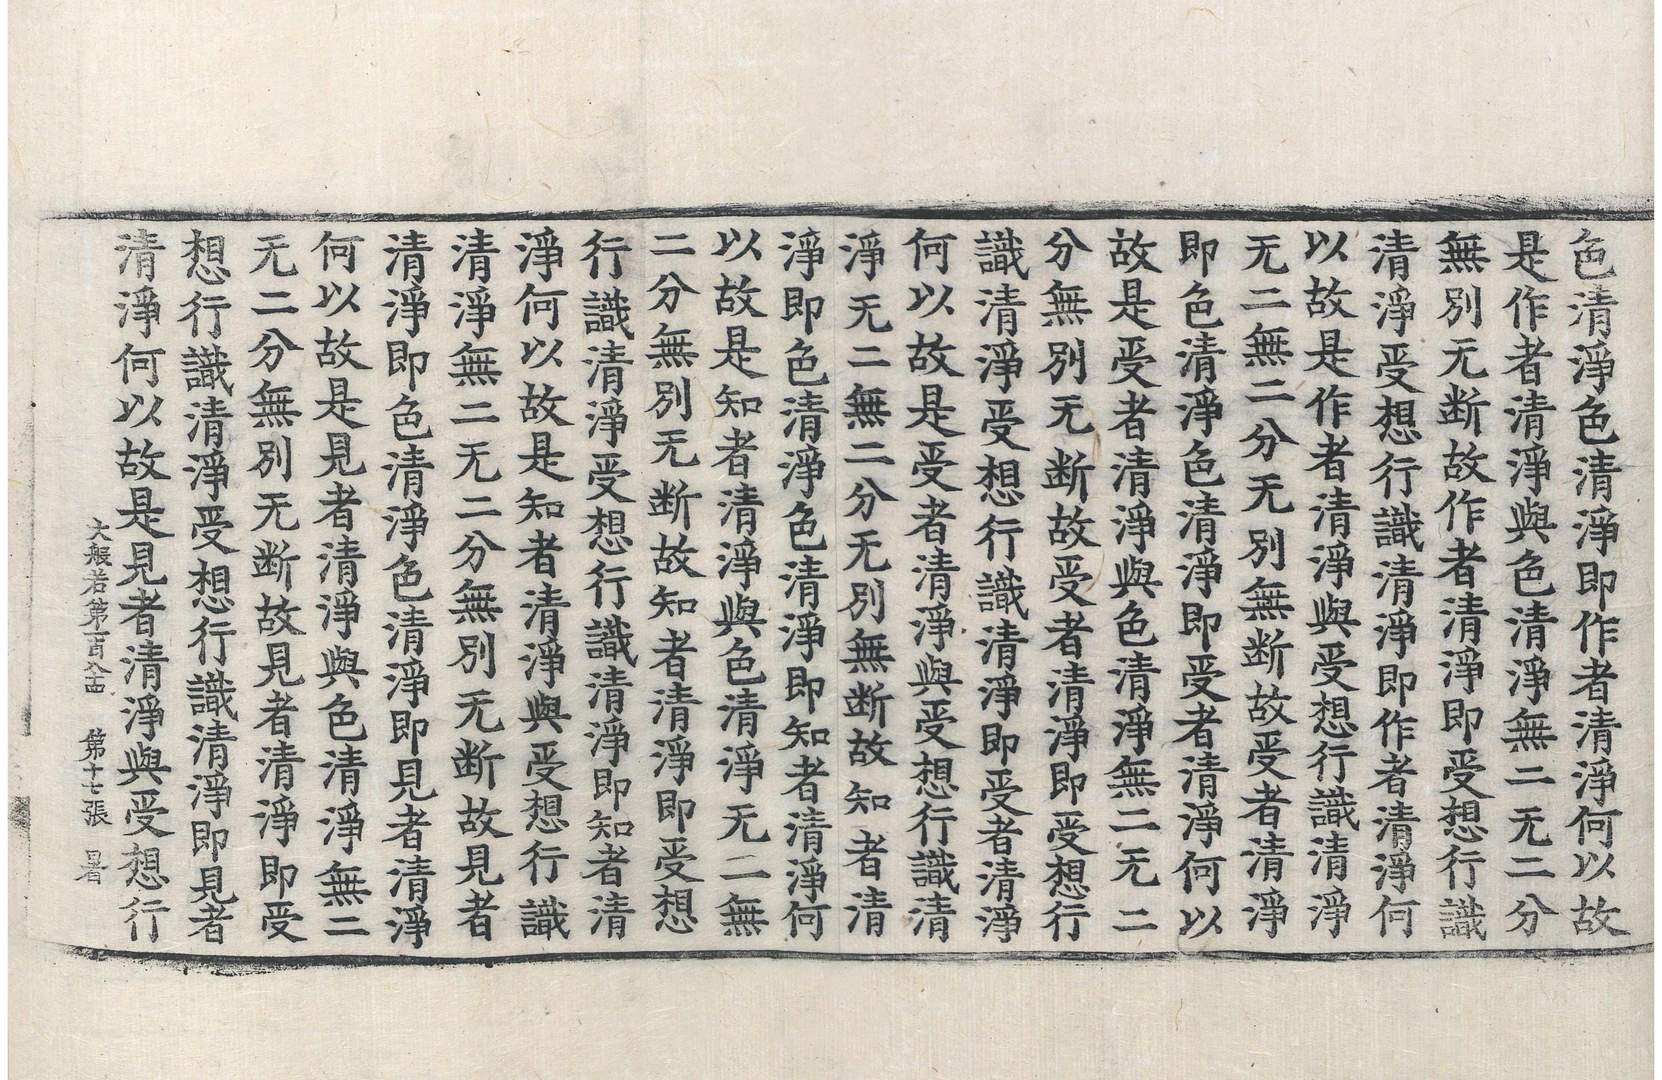 色清淨色清淨即作者清淨何以故
是作者清淨與色清淨無二无二分
無別无断故作者清淨即受想行識
清淨受想行識清淨即作者清淨何
以故是作者清淨與受想行識清淨
无二無二分无別無断故受者清淨
即色清淨色清淨即受者清淨何以
故是受者清淨與色清淨無二无二
分無別无断故受者清淨即受想行
識清淨受想行識清淨即受者清淨
何以故是受者清淨與受想行識清
淨无二無二分无別無断故知者清
淨即色清淨色清淨即知者清淨何
以故是知者清淨與色清淨无二無
二分無別无断故知者清淨即受想
行識清淨受想行識清淨即知者清
淨何以故是知者清淨與受想行識
清淨無二无二分無別无断故見者
清淨即色清淨色清淨即見者清淨
何以故是見者清淨與色清淨無二
无二分無別无断故見者清淨即受
想行識清淨受想行識清淨即見者
清淨何以故是見者清淨與受想行
大般若第百八十四 第十七張 暑